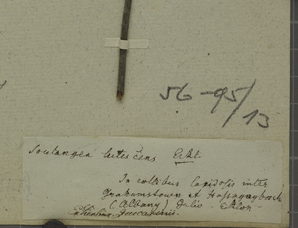 56-95/13
Soulangea lutescens Eckl
In collibus lapidosis inter
Grahamstown et
(Albany) Julio. Eklon